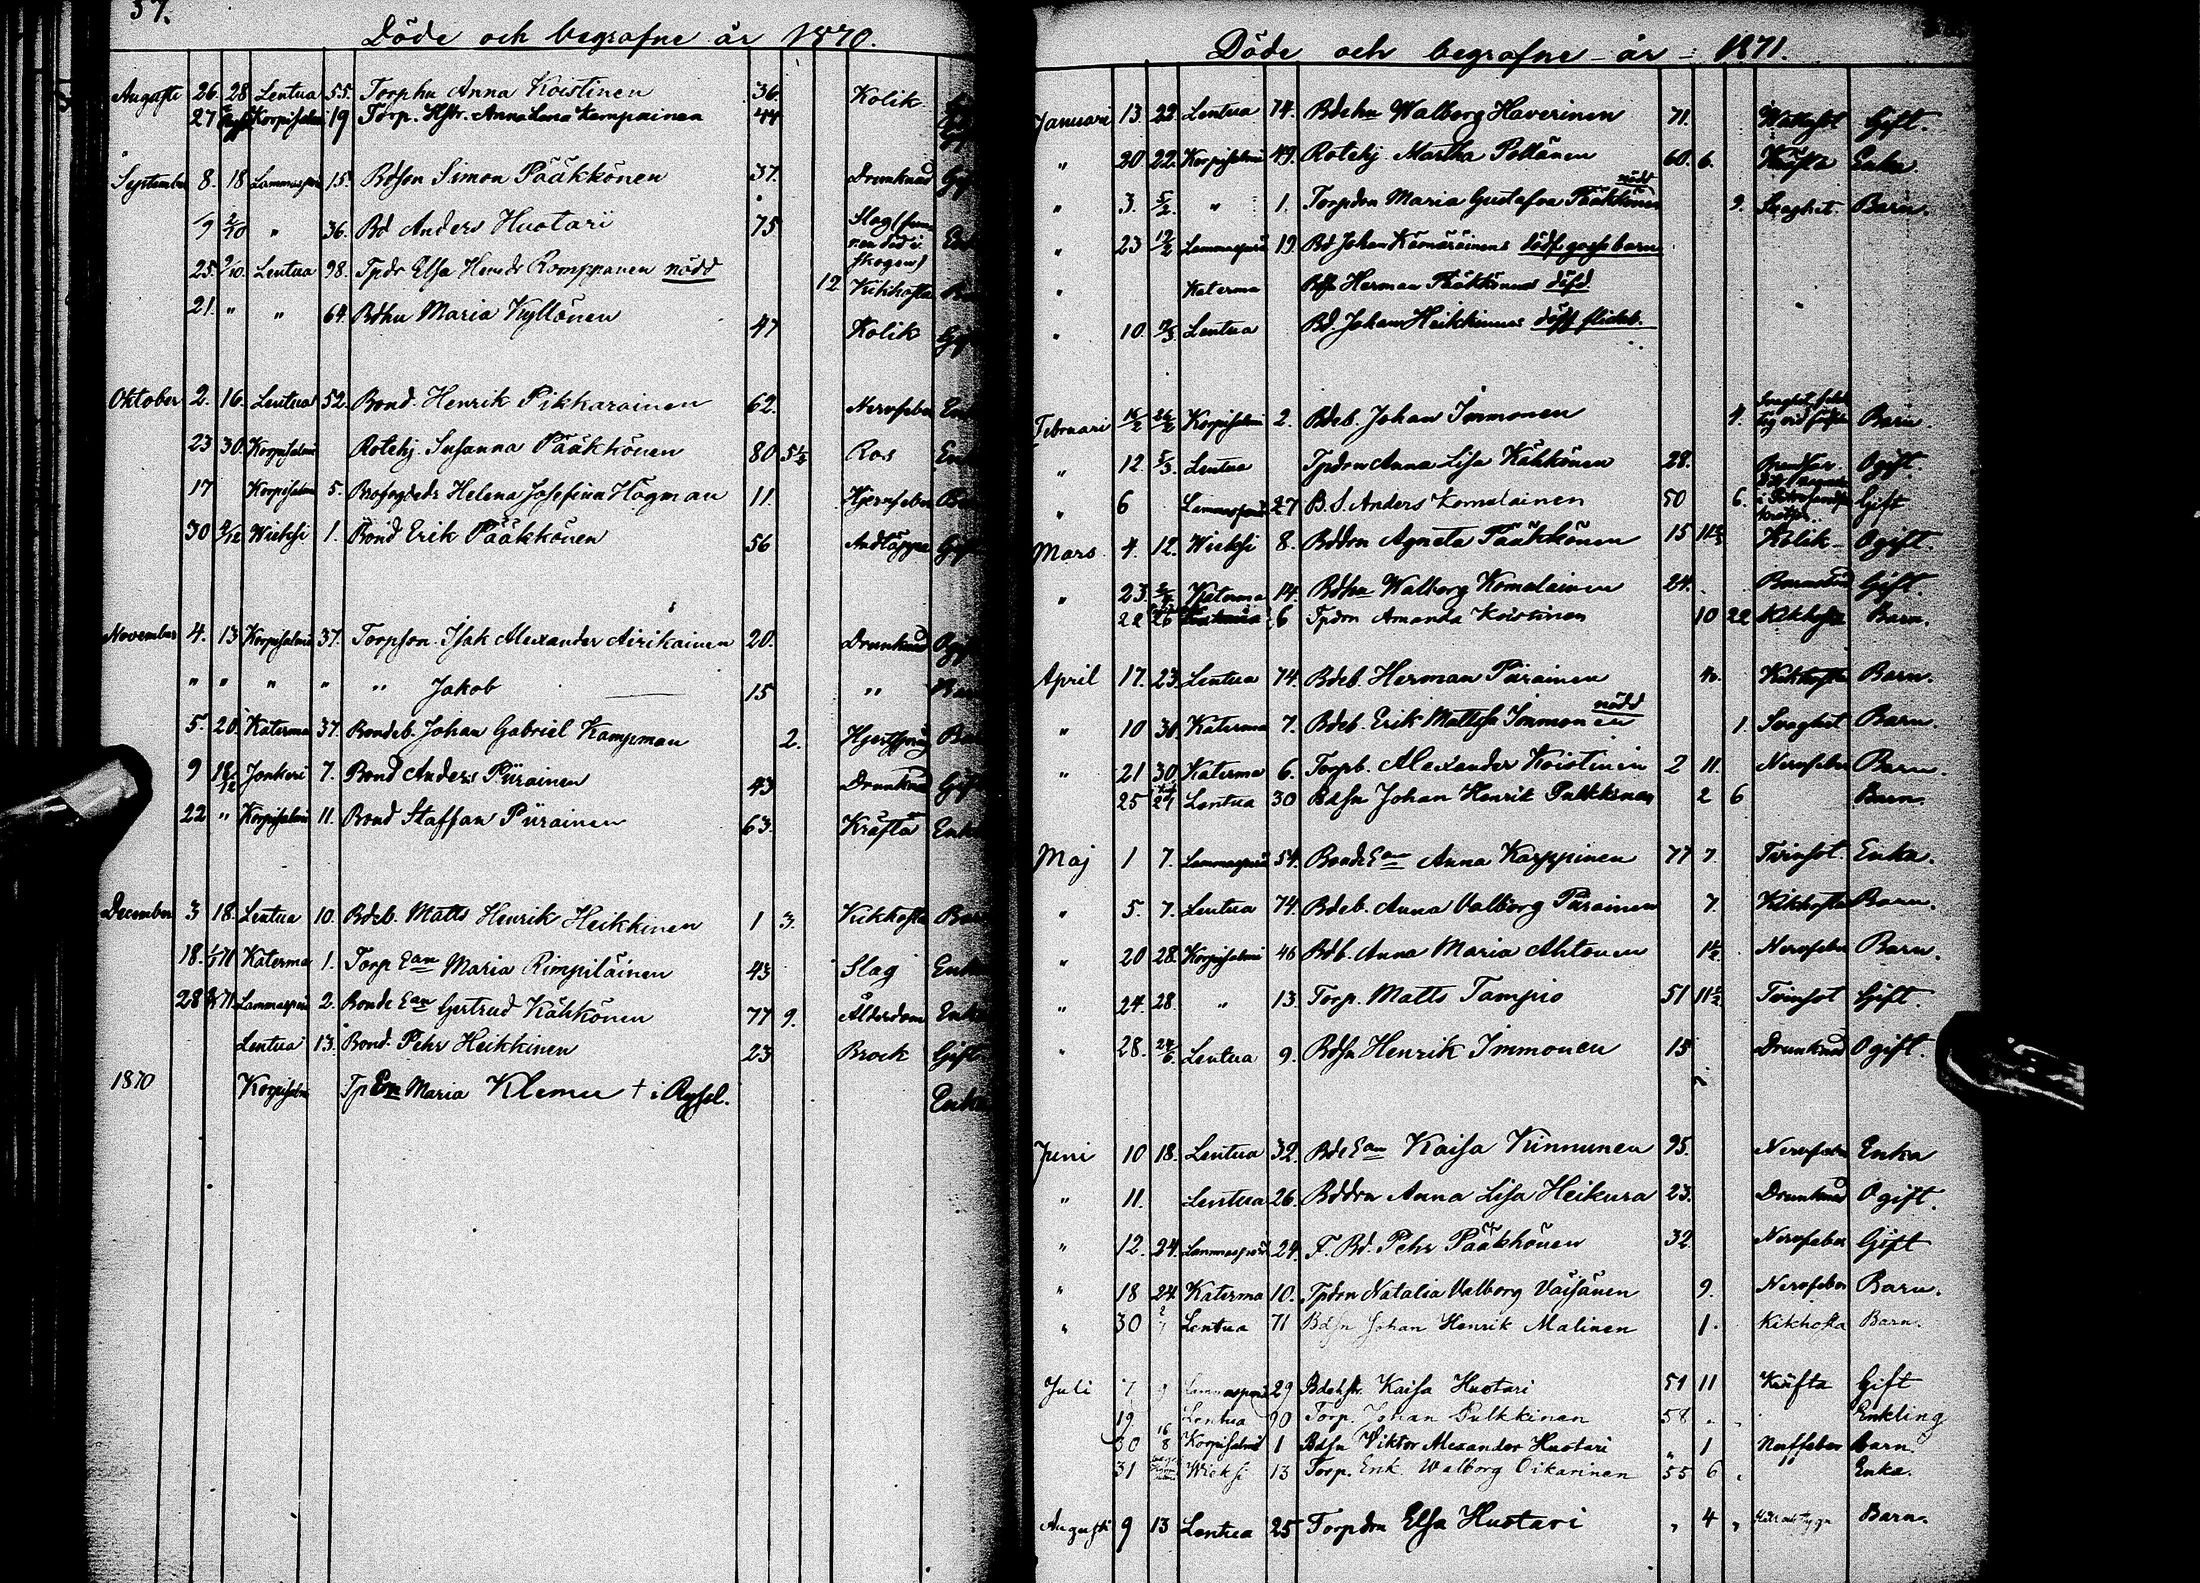 37.
Döde och begrafne år 1870.
Augusti 26 28 Lentua 55. Torphu Anna Koistinen 36. Kolik
27 Korpisalmi 19 Torp. Hstr. Anna Lena Kempainen 44
September 8. 18 Lammasperä 15. Bdson Simon Pääkkönen 37. Drunknad Gif
9 2/10 " 36. Bd Anders Huotari 75 Slag Enk
25. 9/10. Lentua 98. Tpdr Elsa Romppanen nödd 12 Kikhosta Ba
21. " " 64. Bdhu Maria Kyllönen 47 Kolik Gif
Oktober 2. 16. Lentua 52. Bond. Henrik Pikkarainen 62. Nervfeber Enk
23 30. Korpisalmi Rotehj. Susanna Pääkkönen 80 5½ Ros Enk
17 Korpisalmi 5. Helena Josefina Hagman 11. Hjernfeber Ba
30 4/12 Wieksi 1. Bond Erik Pääkkönen 56 Andtäppa Gif
November 4. 13 Korpisalmi 37. Torpson. Isak Alexander Airikainen 20. Drunknad Ogif
" " " " " Jakob — 15 " Bar
5. 20. Katerma 37. Bondeb. Johan Gabriel Kampman 2. Hjertsprång Bar
9 18/12 Jonkeri 7. Bond Anders Piirainen 43 Drunknad Gift
22 " Korpisalmi 11. Bond Staffan Piirainen 63. Kräfta Enk
December 3 18. Lentua 10. Bdeb. Matts Henrik Heikkinen 1 3. Kikhosta Bar
18. 1/1 71 Katerma 1. Torp Ean Maria Rimpiläinen 43 Slag Enka
28 8/1 71. Lammasperä 2. Bonde Ean Gertrud Kähkönen 77 9. Ålderdom Enka
Lentua 13. Bond. Pehr Heikkinen 23 Brock Gift
1870 Korpisalmi Tp En Maria Klemu † i Ryssl. Enka
Döde och begrafne år 1871.
Januari 13. 22. Lentua 74. Bdehu Walborg Haverinen 71. Wattusot Gift.
" 20 22. Korpisalmi 49. Rotehj. Martha Pollänen 60. 6. Kräfta Enka
" 3. 5/2. " 1. Torpdrn Maria Gustafva Pääkkönen nödd 9. Svaghet. Barn.
" 23 19/2 Lammasperä 19. Bd Johan Kämäräinens dödf. gossebarn
" Katerma Bdn Herman Pääkkönens döfd
" 10. 12/3. Lentua Bd. Johan Heikkinens döff flicka.
Februari 14/2 26/2 Korpisalmi 2. Bdeb. Johan Immonen 4. Barn
" 12 5/3. Lentua Tpdrn Anna Lisa Kähkönen 28. Ogift.
" 6 Lammasperä 27 B.S. Anders Komulainen 50 6. Gift
Mars 4. 12. Wieksi 8. Bddrn Agneta Pääkkönen 15 11 Kolik Ogift.
" 23. Katerma 14. Bdhu Walborg Komulainen 24. Barnsbörd Gift.
22 26 6 Tpdrn Amanda Koistinen 10 22 Kikhosta Barn.
April 17. 23. Lentua 74. Bdeb. Herman Piirainen Kikhosta Barn.
" 10 30. Katerma 7. Bdeb. Erik Mattsn Immonen nödd 1. Svaghet Barn.
" 21 30. Katerma 6. Torpb. Alexander Koistinen 2 11. Nervfeber Barn.
25 Lentua 30 Bdsn Johan Henrik Pulkkinen 2 6 Barn.
Maj 1 7. Lammasperä 54. Bonde Ean Anna Karppinen 77 7 Tvinsot. Enka.
" 5. 7. Lentua 74. Bdeb. Anna Valborg Piirainen 7. Kikhosta Barn.
" 20 28. Korpisalmi 46 Bdb. Anna Maria Ahtonen 1½. Nervfeber Barn.
" 24. 28 " 13. Torp. Matts Tampio 51 11½ Tvinsot Gift.
" 28. 24/6 Lentua 9. Bdsn Henrik Immonen 15 Drunknad Ogift.
Juni 10 18. Lentua 32. Bde Ean Kaisa Kinnunen 95. Nervfeber Enka
" 11. Lentua 26. Bddrn Anna Lisa Heikura 23. Drunknad Ogift.
" 12. 24. Lammasperä 24. F. Bd. Pehr Pääkkönen 32 Nervfeber Gift
" 18 24. Katerma 10. Tpdrn Natalia Valborg Väisänen 9. Nervfeber Barn.
" 30 2/7 Lentua 71 Bdsn Johan Henrik Malinen 1. Kikhosta Barn.
Juli 7 9 Lammasperä 29 Bdehstr. Kaisa Huotari 51 11 Kräfta Gift
19 Lentua 90 Torp. Johan Pulkkinen 58 Enkling
30 Korpisalmi 1 Bdsn Viktor Alexander Huotari " 1 Nerffeber Barn.
31 Wieksi 13 Torp. Enk. Walborg Oikarinen 55 6 Enka.
Augusti 9 13 Lentua 25 Torpdrn Elsa Huotari " 4 " Barn.